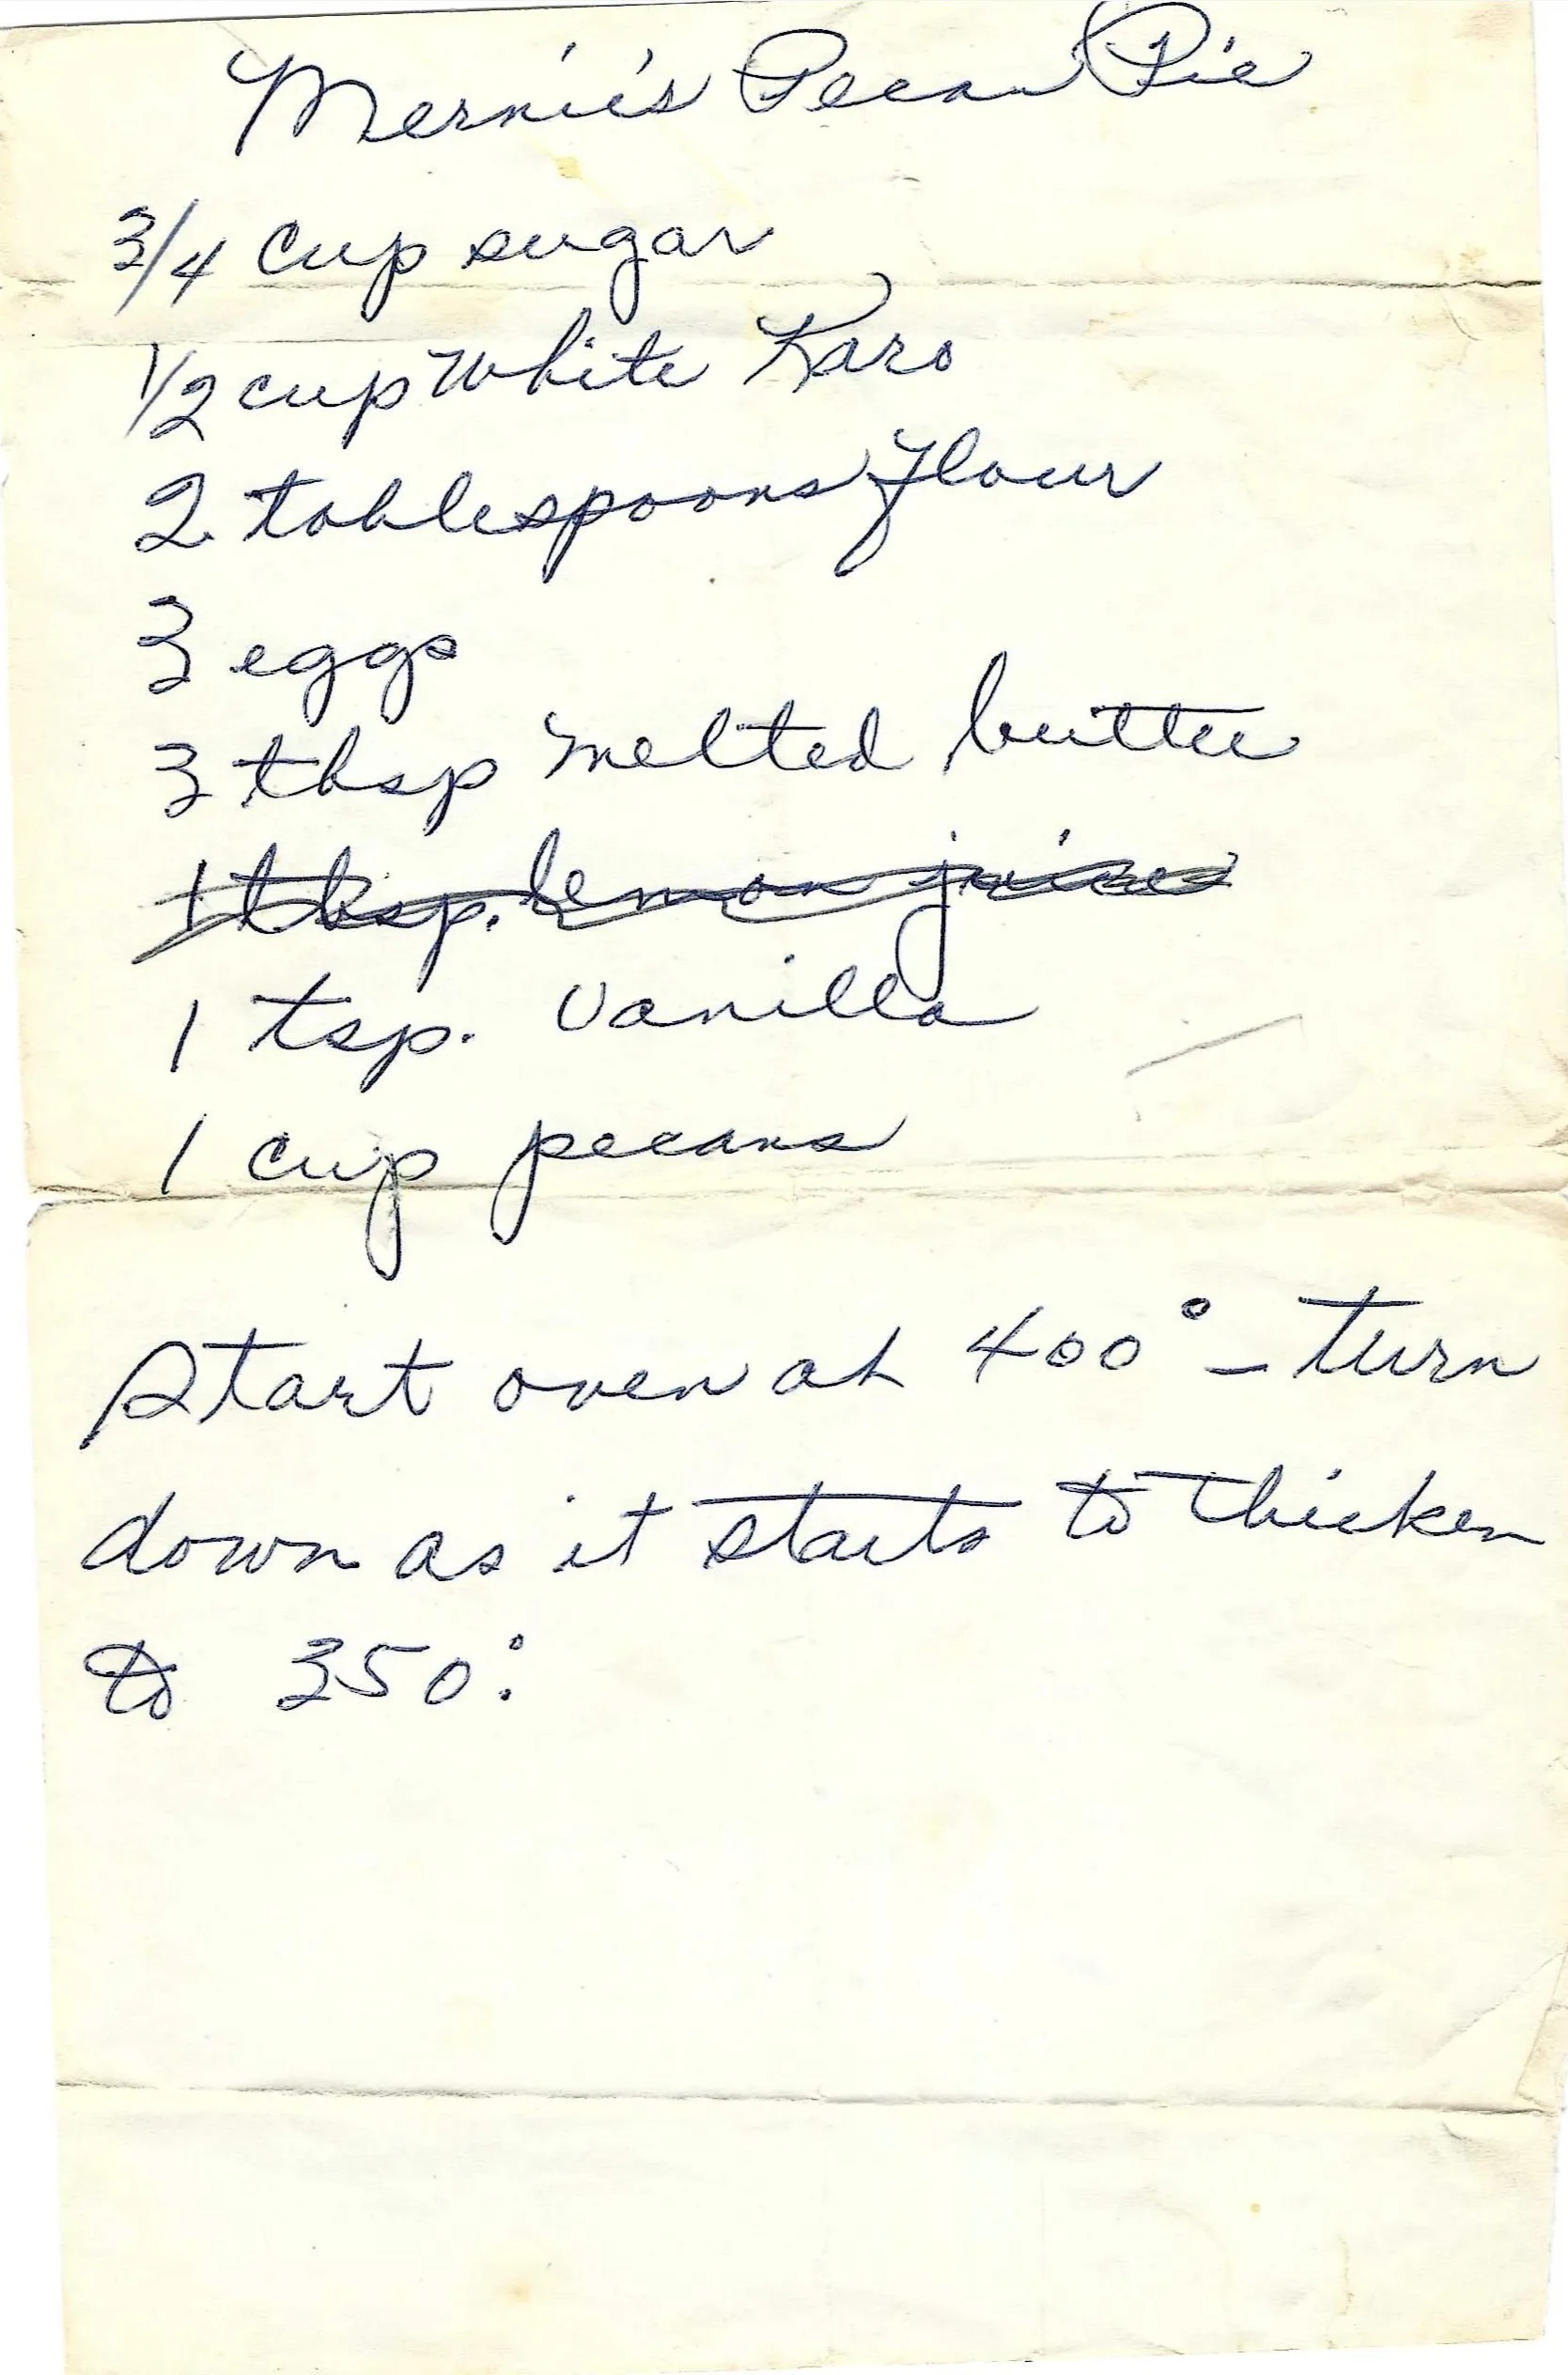 Mernie's Pecan Pie
3/4 cup sugar
1/2 cup White Karo
2 tablespoons flour
3 eggs
3 tbsp melted butter
1 tbsp. lemon juice
1 tsp. Vanilla
1 cup pecans
Start oven at 400° - turn
down as it starts to thicken
to 350°.